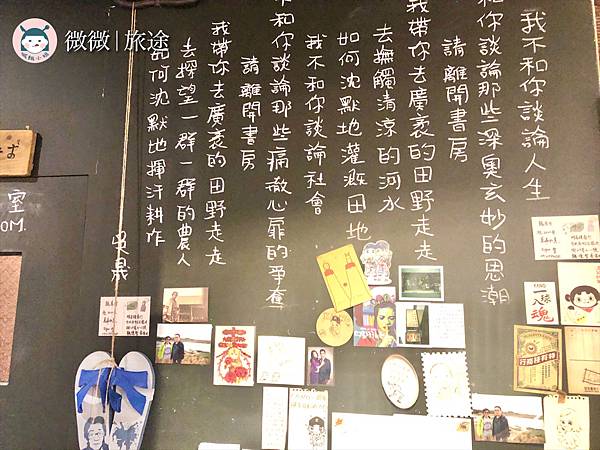 微微|旅途
我不和你談論人生
和你談論那些深奧玄妙的思潮
請離開書房
我帶你去廣袤的田野走走
去撫觸清涼的河水
如何沈默地灌溉田地
我不和你談論社會
不和你談論那些痛徹心扉的爭奪
請離開書房
我帶你去廣袤的田野走走
去探望一群一群的農人
如何沈默地揮汗耕作
吳晟
室
OM.
一球入魂